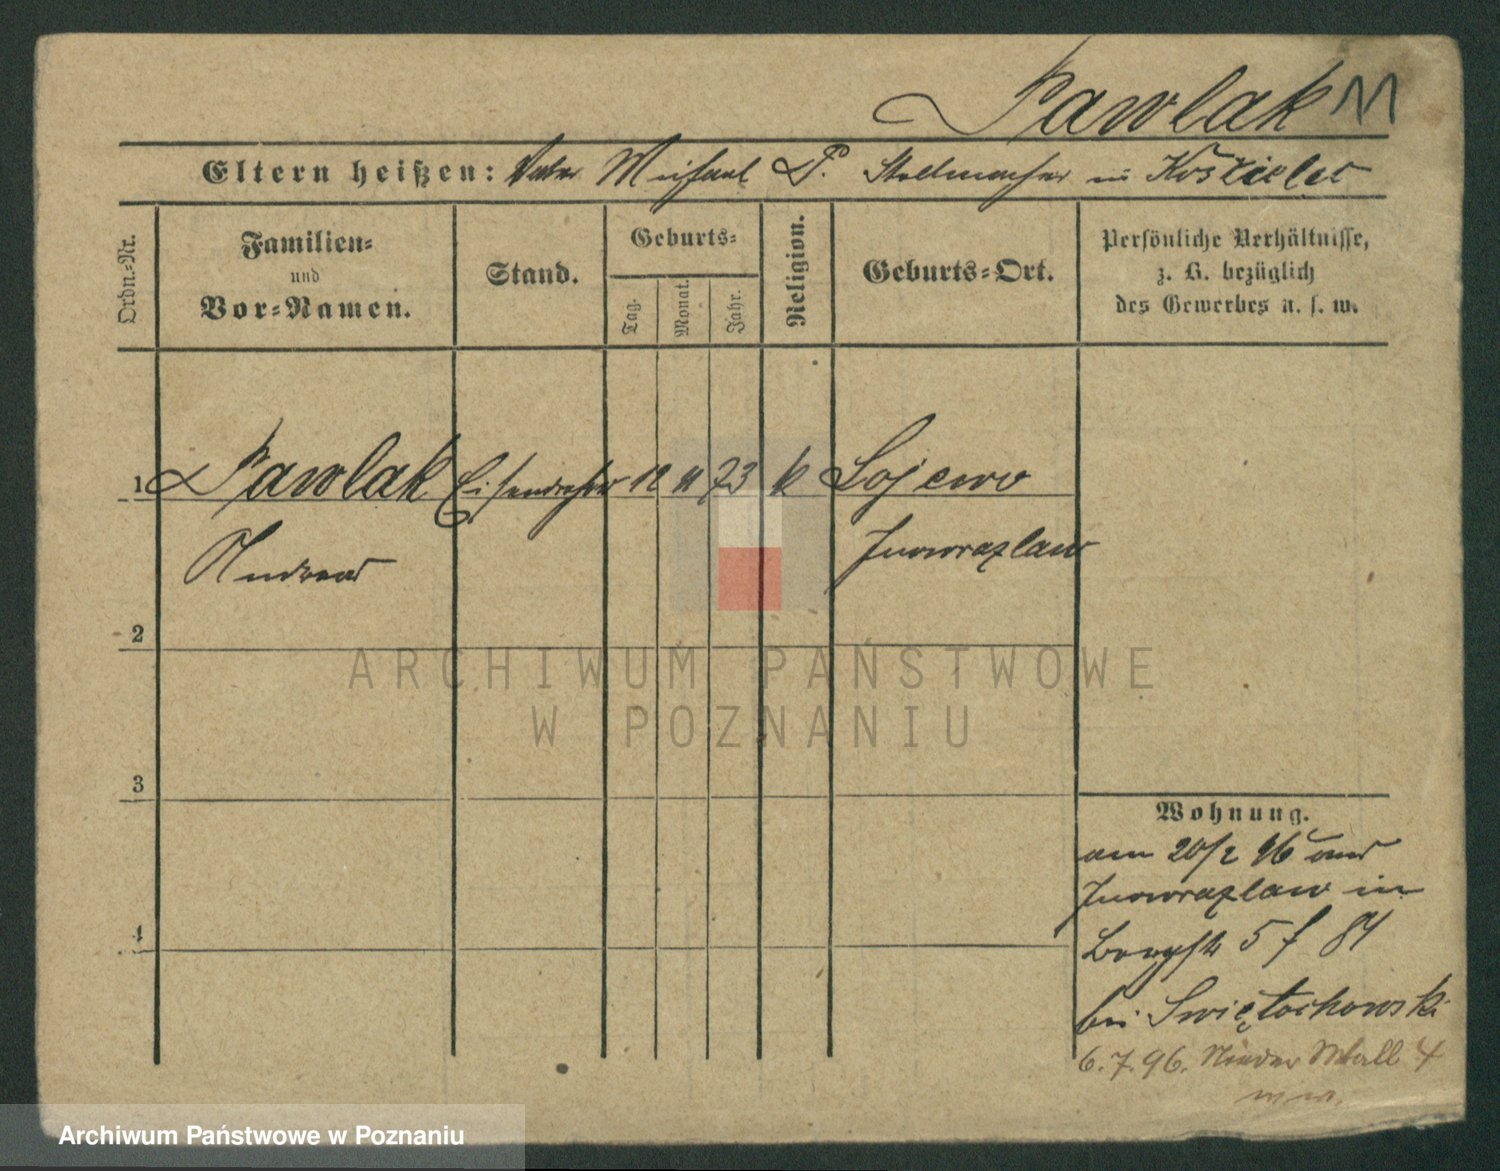 Pawlak
Eltern heißen: Vater Michael P. Stellmacher in Kościelec
Ordn.-Nr.
Familien-
und
Vor-Namen.
Stand.
Geburts-
Tag.
Monat.
Jahr.
Religion.
Geburts-Ort.
Persönliche Verhältnisse,
z. B. bezüglich
des Gewerbes u. s. w.
1 Pawlak Eisendreher 12 11 73 k Lojewo
Andreas Inowrazlaw
2
3
4
Wohnung.
am 20/2 96 aus
Inowrazlaw in
5 f 84
bei Swiętochowski
6.7.96. Nieder Wall 4
ARCHIWUM PAŃSTWOWE
W POZNANIU
Archiwum Państwowe w Poznaniu